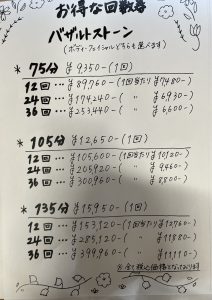 お得な回数券
バザルトストーン
(ボディ・フェイシャルどちらも選べます)
* 75分 ¥9350-(1回)
12回 … ¥89,760-(1回当たり¥7480-)
24回 … ¥174,240-( 〃 ¥6,930-)
36回 … ¥253,440-( 〃 ¥6,600-)
* 105分 ¥12,650-(1回)
12回 … ¥105,600-(1回当たり¥10,120-)
24回 … ¥205,920-( 〃 ¥9,460-)
36回 … ¥300,960-( 〃 ¥8,800-)
* 135分 ¥15,950-(1回)
12回 … ¥153,120-(1回当たり¥12760-)
24回 … ¥285,120-( 〃 ¥11880-)
36回 … ¥399,960-( 〃 ¥11110-)
※全て税込価格となっております